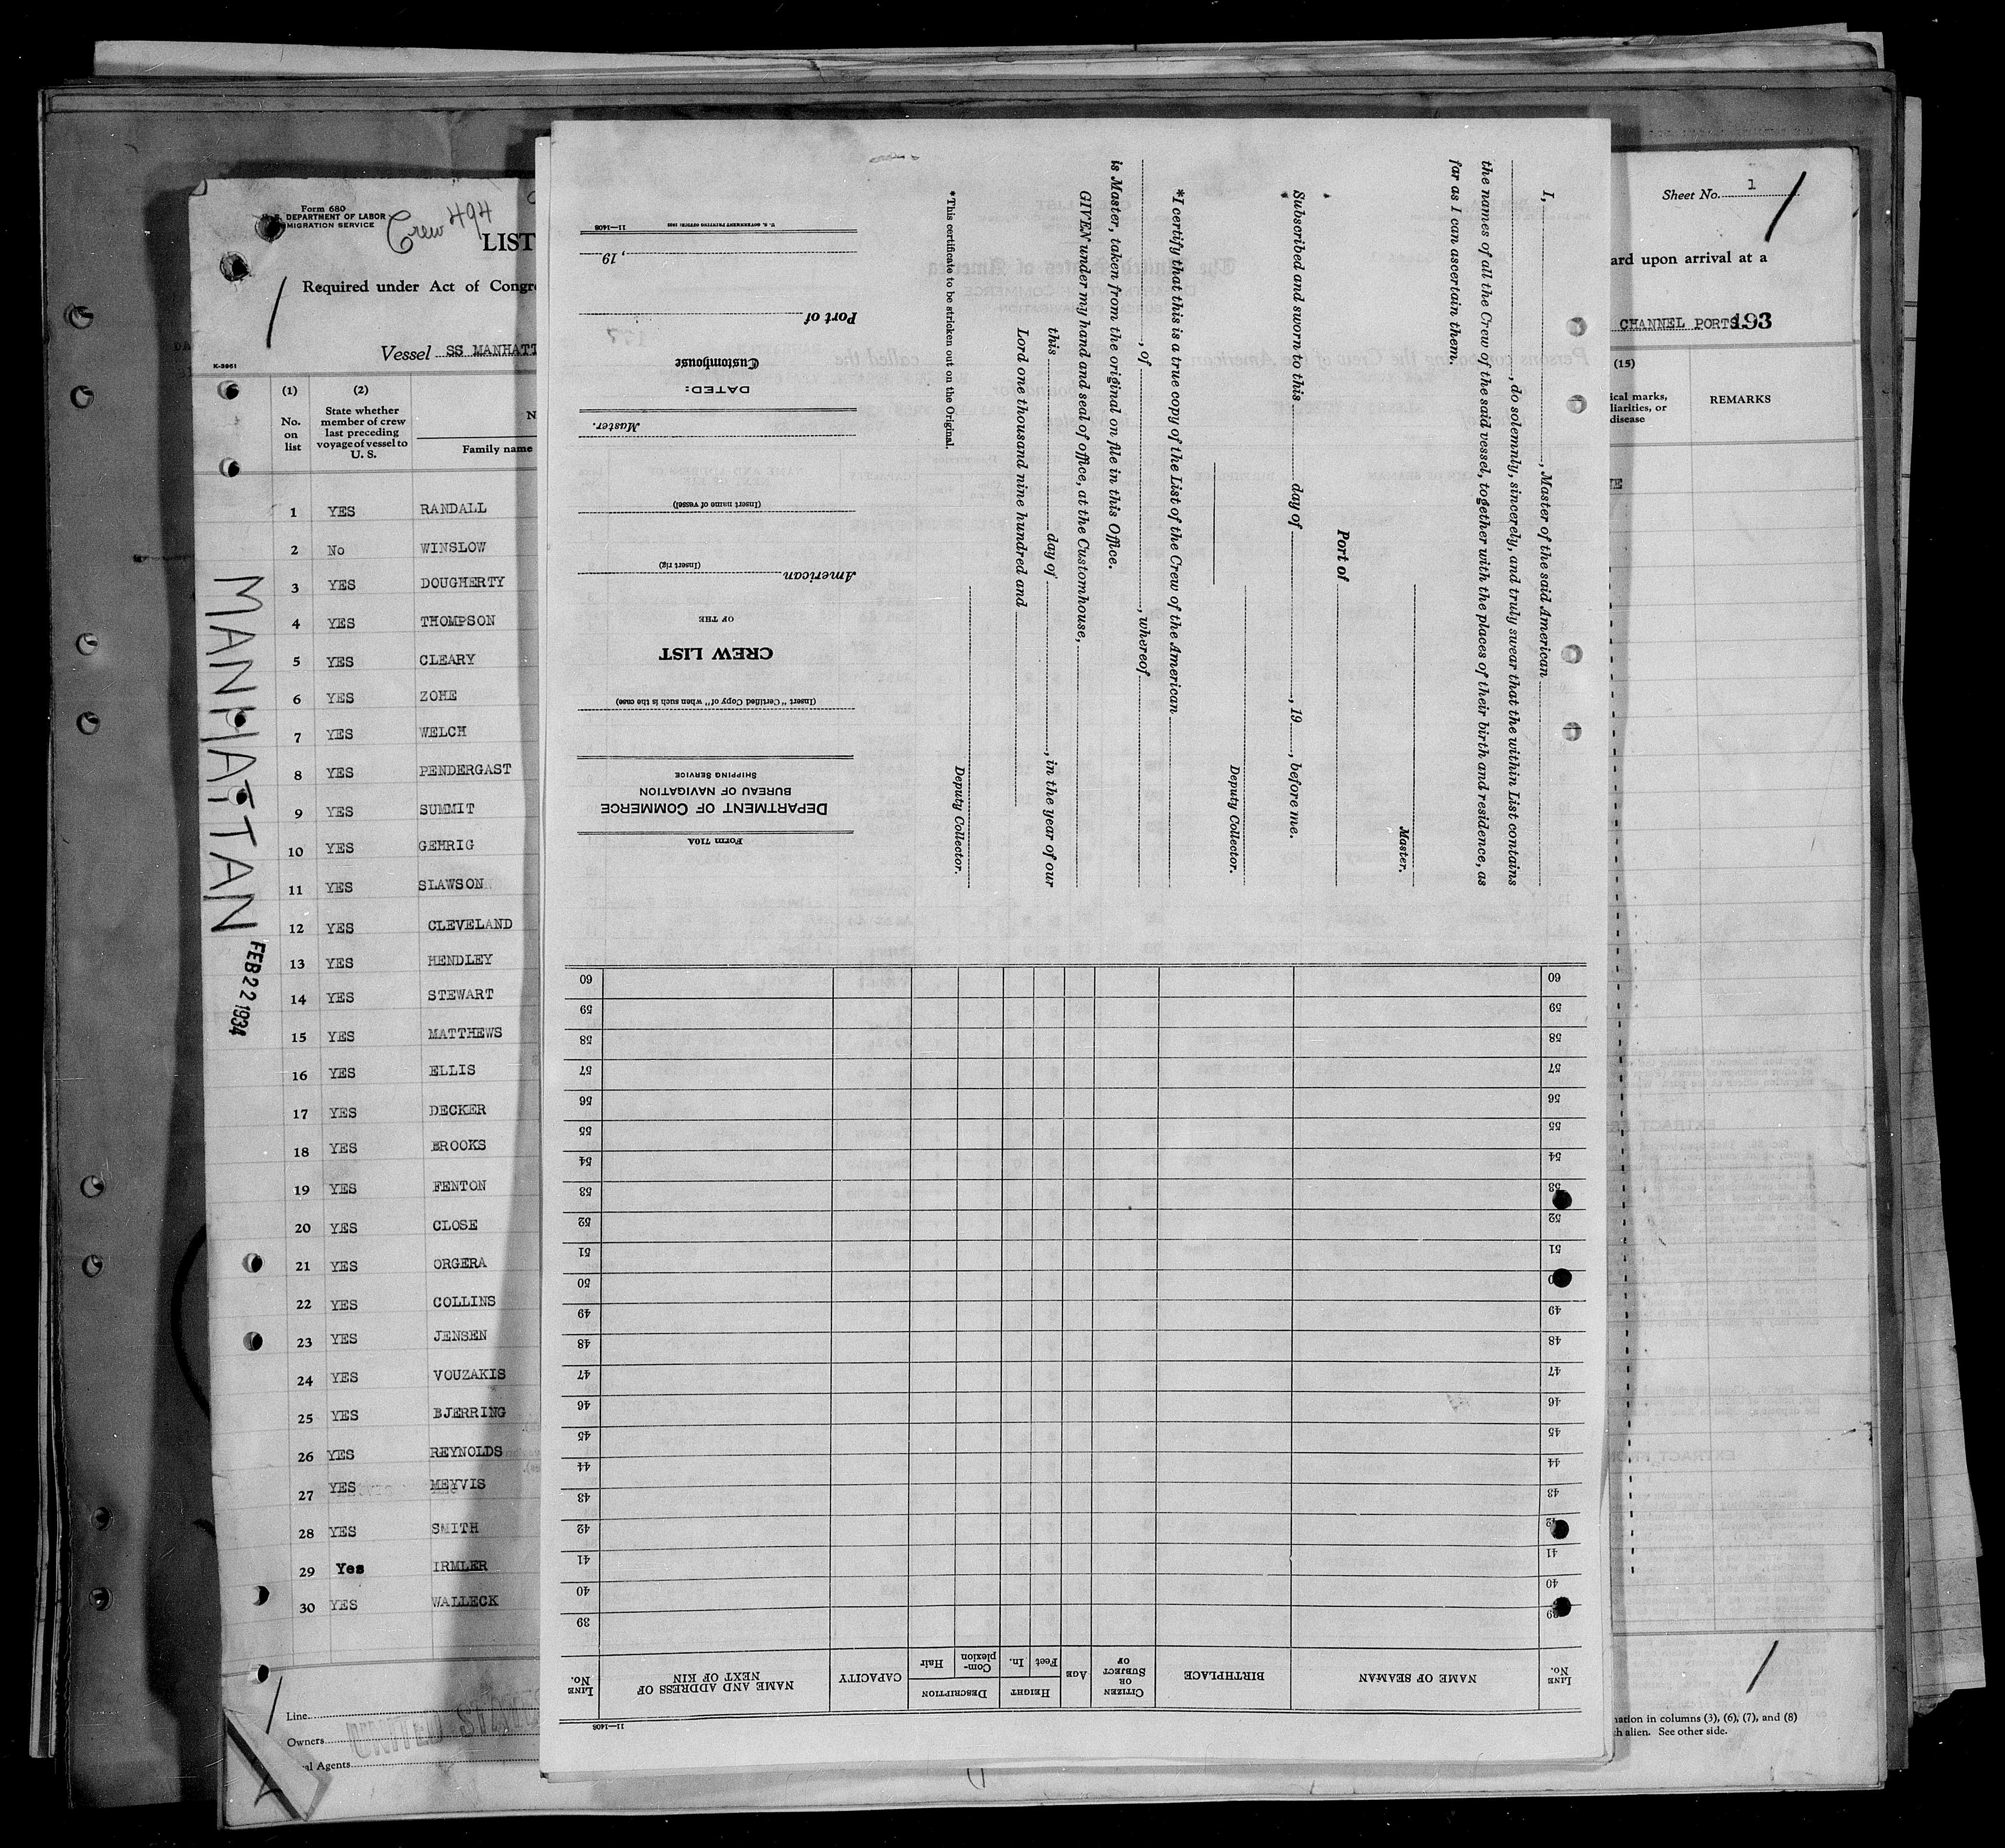 Form 680
DEPARTMENT OF LABOR
MIGRATION SERVICE
Crew 494
LIST
Required under Act of Congre
Vessel SS MANHATT
K-3961
(1)
No.
on
list
(2)
State whether
member of crew
last preceding
voyage of vessel to
U. S.
N
Family name
1 YES RANDALL
2 No WINSLOW
3 YES DOUGHERTY
4 YES THOMPSON
5 YES CLEARY
6 YES ZOHE
7 YES WELCH
8 YES PENDERGAST
9 YES SUMMIT
10 YES GEHRIG
11 YES SLAWSON
12 YES CLEVELAND
13 YES HENDLEY
14 YES STEWART
15 YES MATTHEWS
16 YES ELLIS
17 YES DECKER
18 YES BROOKS
19 YES FENTON
20 YES CLOSE
21 YES ORGERA
22 YES COLLINS
23 YES JENSEN
24 YES VOUZAKIS
25 YES BJERRING
26 YES REYNOLDS
27 YES MEYVIS
28 YES SMITH
29 Yes IRMLER
30 YES WALLECK
MANHATTAN
FEB 22 1934
Line
Owners
UNITED STATES
al Agents
I, , Master of the said American
, do solemnly, sincerely, and truly swear that the within List contains
the names of all the Crew of the said vessel, together with the places of their birth and residence, as
far as I can ascertain them.
Master.
Port of
Subscribed and sworn to this day of , 19 , before me.
Deputy Collector.
*I certify that this is a true copy of the List of the Crew of the American
, of , whereof
is Master, taken from the original on file in this Office.
GIVEN under my hand and seal of office, at the Customhouse,
this day of , in the year of our
Lord one thousand nine hundred and
Deputy Collector.
*This certificate to be stricken out on the Original.
Form 710A
DEPARTMENT OF COMMERCE
BUREAU OF NAVIGATION
SHIPPING SERVICE
(Insert "Certified Copy of" when such is the case)
CREW LIST
OF THE
American
(Insert rig)
(Insert name of vessel)
Master.
DATED:
Customhouse
Port of
, 19
11—1408
11—1408
LINE No.
NAME OF SEAMAN
BIRTHPLACE
CITIZEN OR SUBJECT OF
AGE
HEIGHT
Feet
In.
DESCRIPTION
Com-plexion
Hair
CAPACITY
NAME AND ADDRESS OF NEXT OF KIN
LINE No.
39 39
40 40
41 41
42 42
43 43
44 44
45 45
46 46
47 47
48 48
49 49
50
51 51
52 52
53 53
54 54
55 55
56 56
57 57
58 58
59 59
60 60
Sheet No. 1
ard upon arrival at a
CHANNEL PORTS 193
(15)
ical marks,
liarities, or
disease
REMARKS
nation in columns (3), (6), (7), and (8)
h alien. See other side.